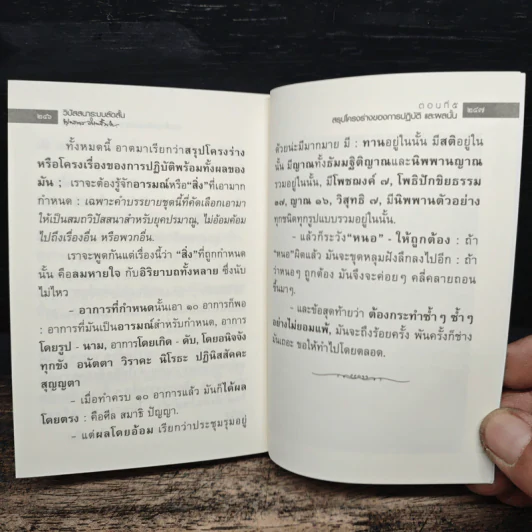 ๒๔๖ วิปัสสนาระบบลัดสั้น
ทั้งหมดนี้ อาตมาเรียกว่าสรุปโครงร่าง
หรือโครงเรื่องของการปฏิบัติพร้อมทั้งผลของ
มัน ; เราจะต้องรู้จักอารมณ์หรือ"สิ่ง"ที่เอามาก
กำหนด : เฉพาะคำบรรยายชุดนี้ที่คัดเลือกเอามา
ให้เป็นสมถวิปัสสนาสำหรับยุคปรมาณู, ไม่อ้อมค้อม
ไปถึงเรื่องอื่น หรือพวกอื่น.
เราจะพูดกันแต่เรื่องนี้ว่า "สิ่ง"ที่ถูกกำหนด
นั้น คือลมหายใจ กับอิริยาบถทั้งหลาย ซึ่งนับ
ไม่ไหว
- อาการที่กำหนดนั้นเอา ๑๐ อาการก็พอ
: อาการที่มันเป็นอารมณ์สำหรับกำหนด, อาการ
โดยรูป - นาม, อาการโดยเกิด - ดับ, โดยอนิจจัง
ทุกขัง อนัตตา วิราคะ นิโรธะ ปฏินิสสัคคะ
สุญญตา
- เมื่อทำครบ ๑๐ อาการแล้ว มันก็ได้ผล
โดยตรง : คือศีล สมาธิ ปัญญา.
- แต่ผลโดยอ้อม เรียกว่าประชุมรุมอยู่
ตอนที่ ๕
สรุปโครงร่างของการปฏิบัติ และผลนั้น ๒๔๗
ด้วยน่ะมีมากมาย มี : ทานอยู่ในนั้น มีสติอยู่ใน
นั้น มีญาณทั้งธัมมฐิติญาณและนิพพานญาณ
รวมอยู่ในนั้น, มีโพชฌงค์ ๗, โพธิปักขิยธรรม
๓๗, ญาณ ๑๖, วิสุทธิ ๗, มีนิพพานตัวอย่าง
ทุกชนิดทุกรูปแบบรวมอยู่ในนั้น.
- แล้วก็ระวัง"หนอ" - ให้ถูกต้อง : ถ้า
"หนอ"ผิดแล้ว มันจะขุดหลุมฝังลึกลงไปอีก : ถ้า
ว่าหนอๆ ถูกต้อง มันจึงจะค่อยๆ คลี่คลายถอน
ขึ้นมาๆ.
- และข้อสุดท้ายว่า ต้องกระทำซ้ำๆ ซ้ำๆ
อย่างไม่ยอมแพ้, มันจะถึงร้อยครั้ง พันครั้งก็ช่าง
มันเถอะ ขอให้ทำไปโดยตลอด.